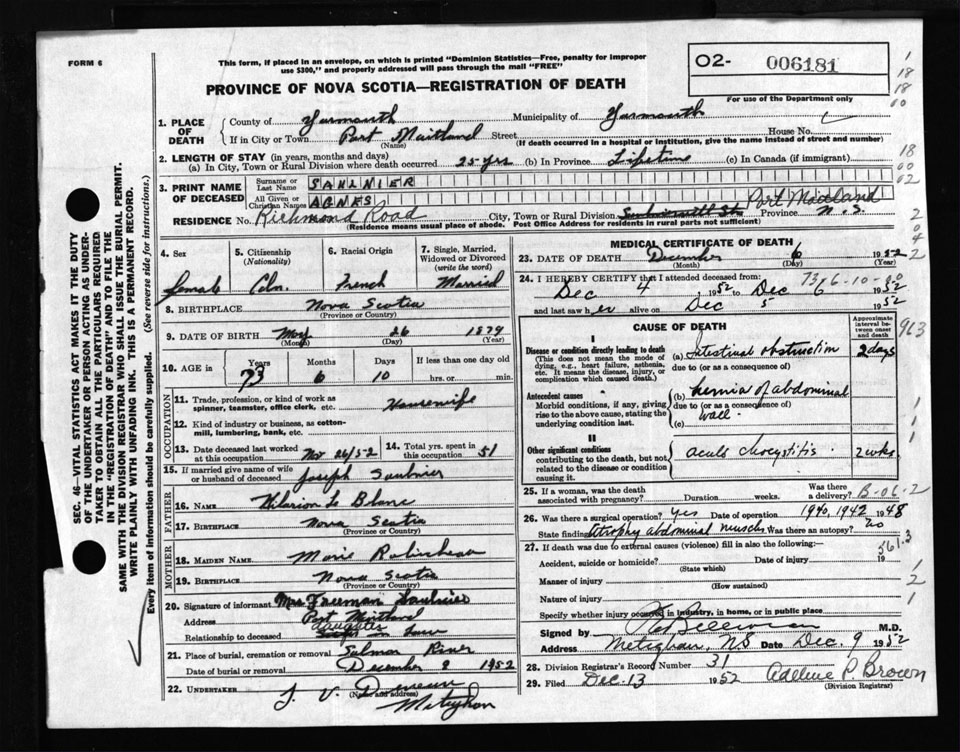 FORM 6
This form, if placed in an envelope, on which is printed "Dominion Statistics—Free, penalty for improper
use $300," and properly addressed will pass through the mail "FREE"
O2- 006181
For use of the Department only
PROVINCE OF NOVA SCOTIA—REGISTRATION OF DEATH
1
18
18
00
18
00
02
2
0
4
2
963
1. PLACE OF DEATH
County of Yarmouth Municipality of Yarmouth
If in City or Town Port Maitland Street House No.
(Name) (If death occurred in a hospital or institution, give the name instead of street and number)
2. LENGTH OF STAY (in years, months and days)
(a) In City, Town or Rural Division where death occurred 25 yrs (b) In Province Lifetime (c) In Canada (if immigrant)
3. PRINT NAME OF DECEASED
Surname or Last Name SAULNIER
All Given or Christian Names AGNES
RESIDENCE No. Richmond Road City, Town or Rural Division Port Maitland Province N.S.
(Residence means usual place of abode. Post Office Address for residents in rural parts not sufficient)
4. Sex 5. Citizenship (Nationality) 6. Racial Origin 7. Single, Married, Widowed or Divorced (write the word)
female Cdn. French Married
8. BIRTHPLACE Nova Scotia
(Province or Country)
9. DATE OF BIRTH May 26 1879
(Month) (Day) (Year)
10. AGE in Years Months Days If less than one day old
73 6 10 hrs. or min.
OCCUPATION
11. Trade, profession, or kind of work as
spinner, teamster, office clerk, etc. Housewife
12. Kind of industry or business, as cotton-
mill, lumbering, bank, etc.
13. Date deceased last worked at this occupation Nov 26/52 14. Total yrs. spent in this occupation 51
15. If married give name of wife
or husband of deceased Joseph Saulnier
FATHER
16. NAME Hilarion Le Blanc
17. BIRTHPLACE Nova Scotia
(Province or Country)
MOTHER
18. MAIDEN NAME Marie Robicheau
19. BIRTHPLACE Nova Scotia
(Province or Country)
20. Signature of informant Mrs Freeman Saulnier
Address Port Maitland
Relationship to deceased daughter in law
21. Place of burial, cremation or removal Salmon River
Date of burial or removal December 9 1952
22. UNDERTAKER J. V. Deveau
(Name and address)
Meteghan
MEDICAL CERTIFICATE OF DEATH
23. DATE OF DEATH December 6 1952
(Month) (Day) (Year)
24. I HEREBY CERTIFY that I attended deceased from: 73-6-10
Dec 4 1952 to Dec 6 1952
and last saw her alive on Dec 5 1952
CAUSE OF DEATH
Approximate interval between onset and death
I
Disease or condition directly leading to death
(This does not mean the mode of
dying, e.g., heart failure, asthenia,
etc. It means the disease, injury, or
complication which caused death.)
(a) Intestinal obstruction 2 days
due to (or as a consequence)
Antecedent causes
Morbid conditions, if any, giving
rise to the above cause, stating the
underlying condition last.
(b) hernia of abdominal
due to (or as a consequence) wall.
(c)
II
Other significant conditions
contributing to the death, but not
related to the disease or condition
causing it.
acute chocystitis. 2 wks.
25. If a woman, was the death
associated with pregnancy? Duration weeks. Was there a delivery? B-06-2
26. Was there a surgical operation? Yes Date of operation 1940, 1942 1948
State finding atrophy abdominal muscles Was there an autopsy? no
27. If death was due to external causes (violence) fill in also the following:— 561.3
Accident, suicide or homicide? Date of injury 19
(State which)
Manner of injury
(How sustained)
Nature of injury
Specify whether injury occurred in industry, in home, or in public place
Signed by M.D.
Address Meteghan, N.S Date Dec. 9 1952
28. Division Registrar's Record Number 31
29. Filed Dec. 13 1952 Adeline P. Brown
(Division Registrar)
SEC. 46—VITAL STATISTICS ACT MAKES IT THE DUTY
OF THE UNDERTAKER OR PERSON ACTING AS UNDER-
TAKER TO OBTAIN ALL THE PARTICULARS REQUIRED
IN THE "REGISTRATION OF DEATH" AND TO FILE THE
SAME WITH THE DIVISION REGISTRAR WHO SHALL ISSUE THE BURIAL PERMIT.
WRITE PLAINLY WITH UNFADING INK. THIS IS A PERMANENT RECORD.
Every item of information should be carefully supplied. (See reverse side for instructions.)